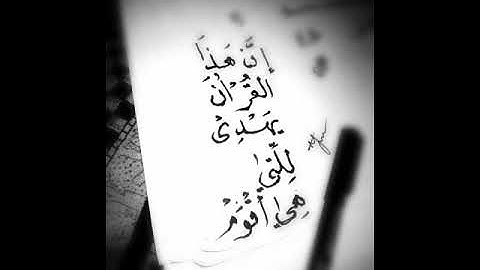 إِنَّ هَٰذَا
القُرْآنَ
يَهْدِي
لِلَّتِي
هِيَ أَقْوَمُ